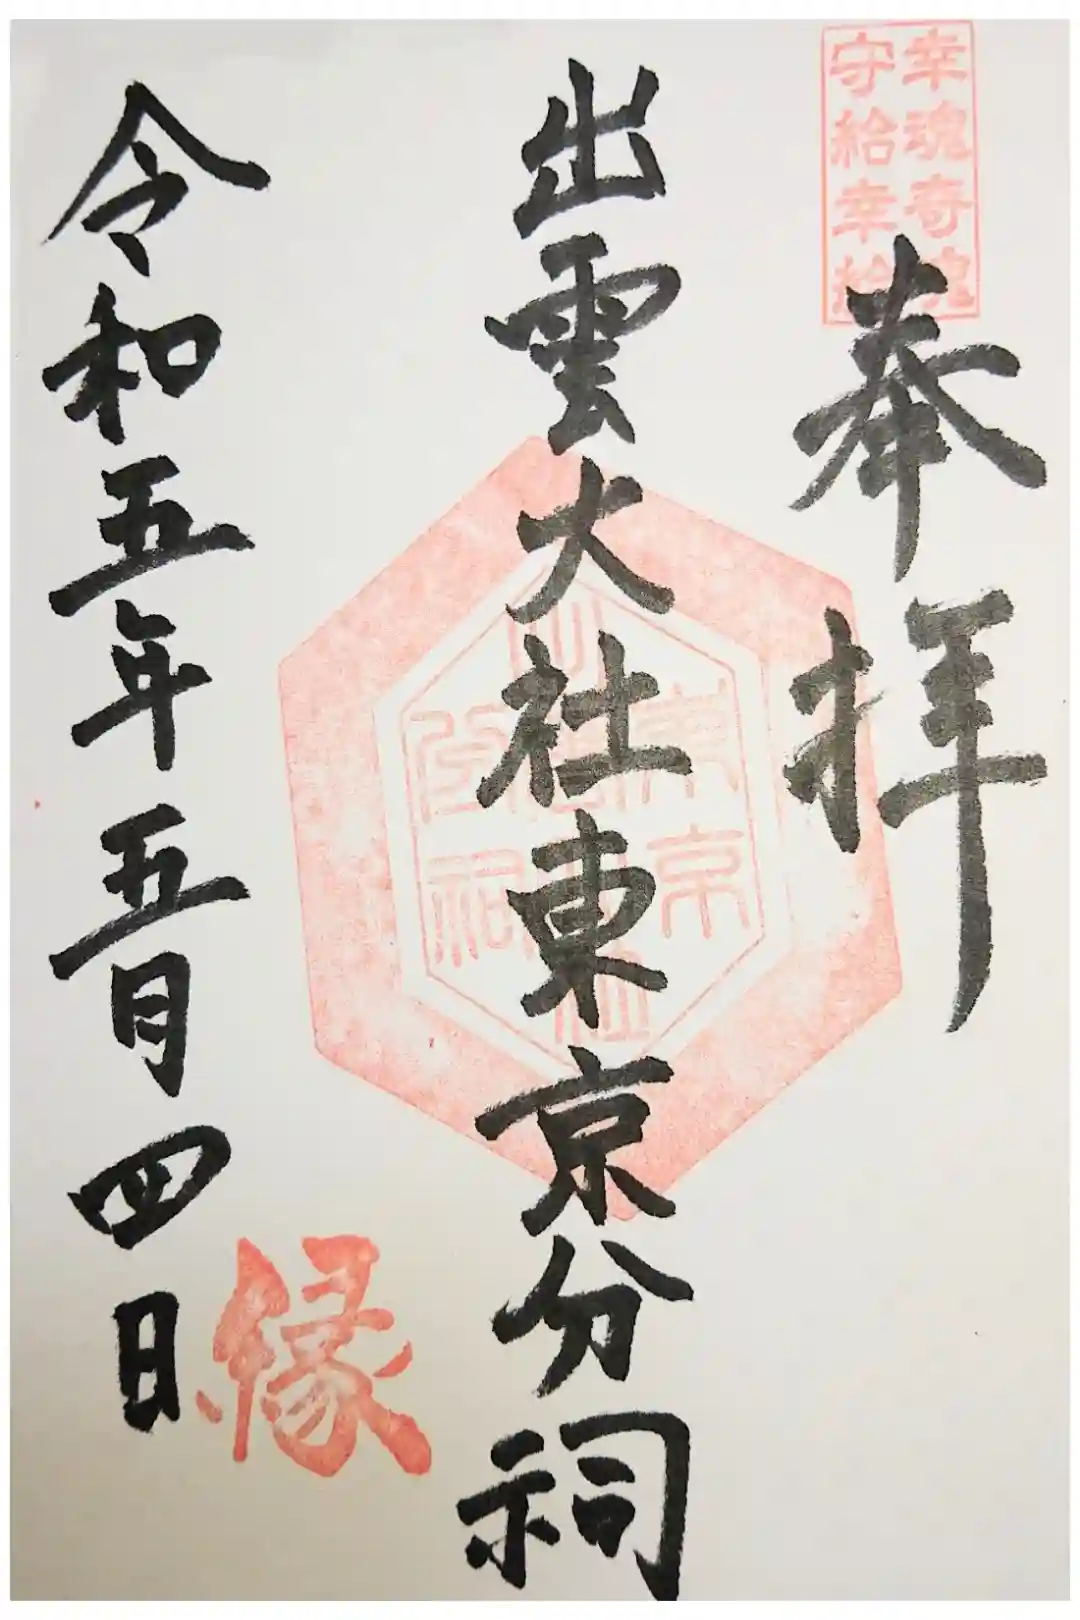 幸魂奇魂
守給幸給
奉拝
出雲大社東京分祠
東京
出雲大社
分祠
令和五年五月四日
縁